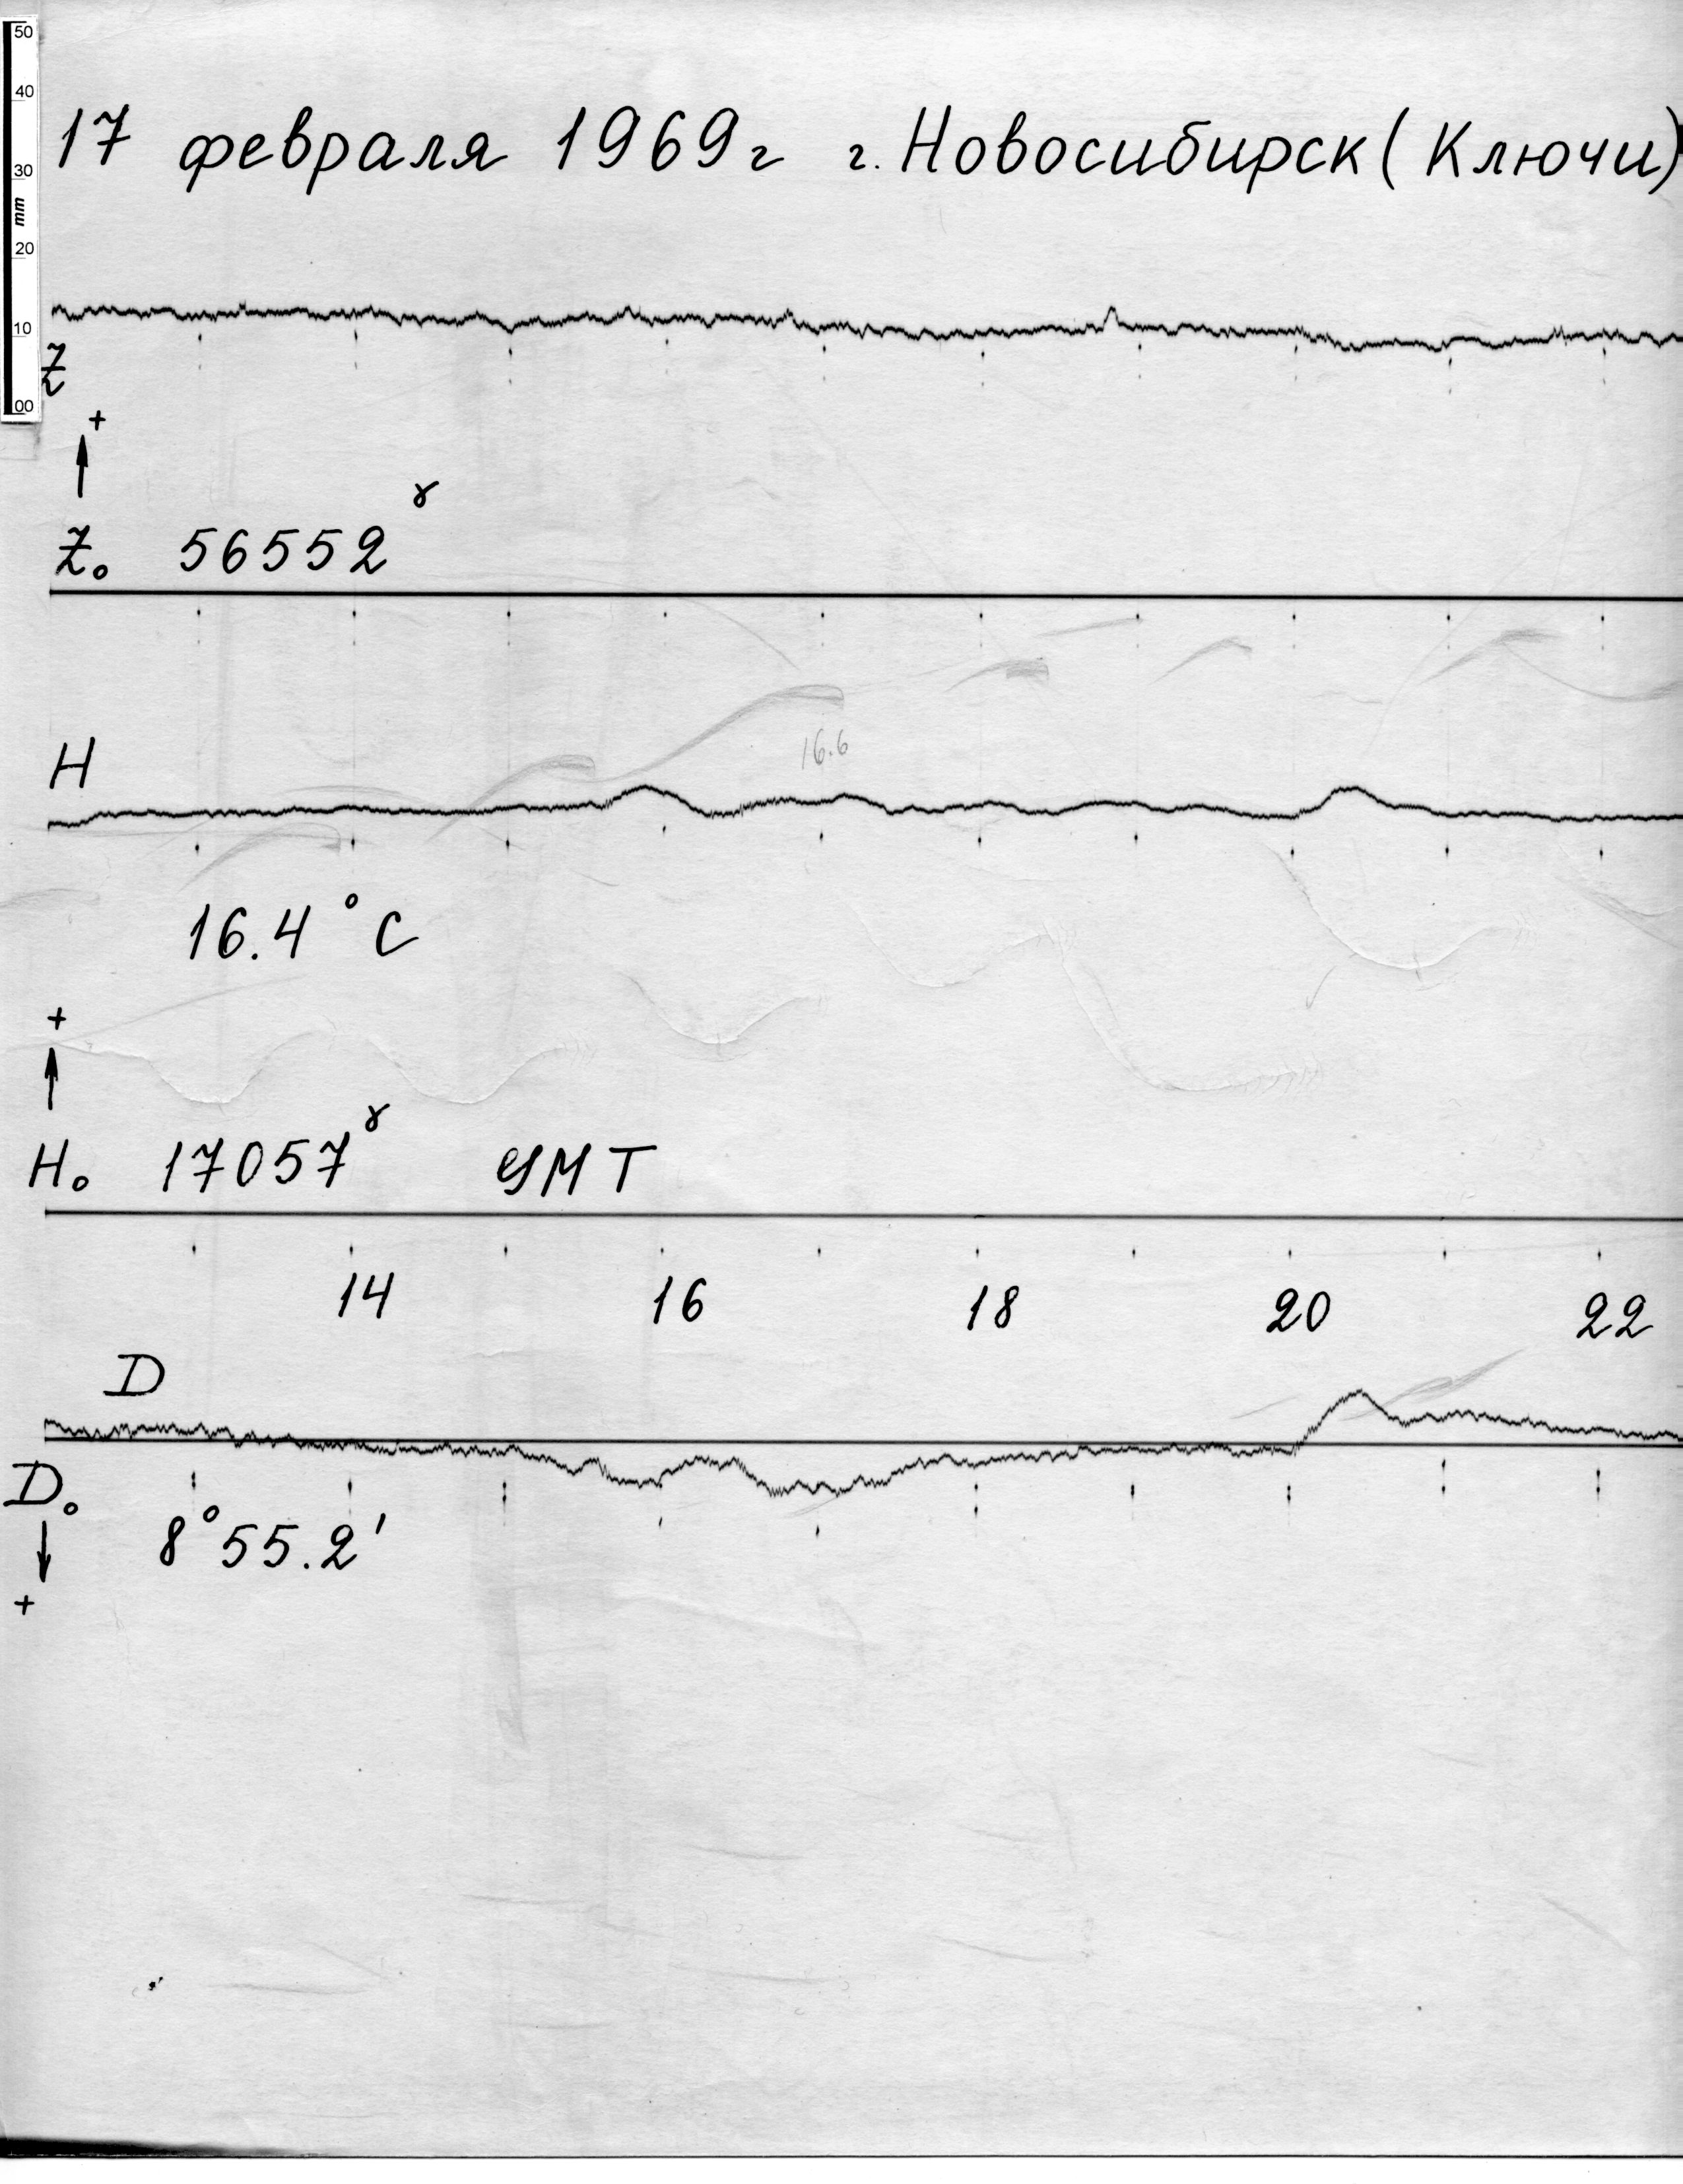 50
40
30
mm
20
10
00
17 февраля 1969г г. Новосибирск (Ключи)
Z
+
Z₀ 56552ᵞ
H
16.6
16.4°C
+
H₀ 17057ᵞ УМТ
14 16 18 20 22
D
D₀
8°55.2'
+